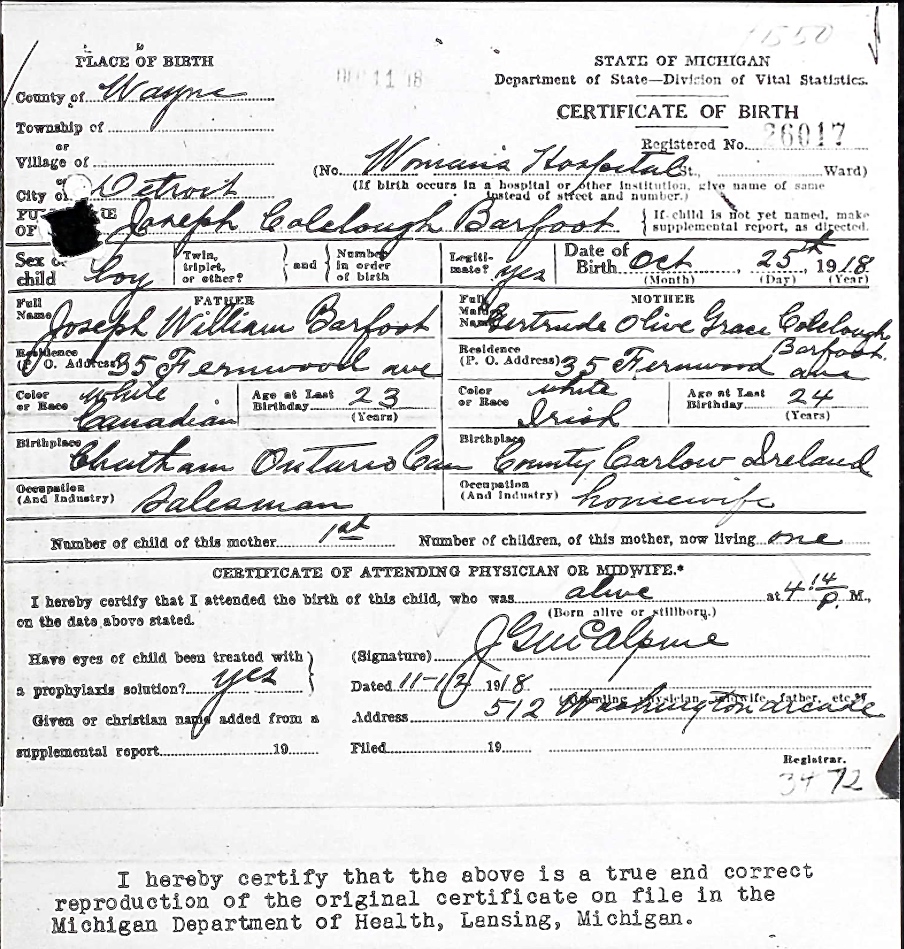 1550
PLACE OF BIRTH
STATE OF MICHIGAN
Department of State—Division of Vital Statistics.
DEC 11 18
County of Wayne
CERTIFICATE OF BIRTH
Township of
or
Registered No. 26017
Village of
(No. Woman's Hospital St., Ward)
or
City of Detroit
(If birth occurs in a hospital or other institution, give name of same instead of street and number.)
FULL NAME OF Joseph Colclough Barfoot
{ If child is not yet named, make supplemental report, as directed.
Sex of child boy
Twin, triplet, or other? } and { Number in order of birth
Legiti-mate? yes
Date of Birth Oct, 25th, 1918
(Month) (Day) (Year)
FATHER
MOTHER
Full Name Joseph William Barfoot
Full Maiden Name Gertrude Olive Grace Colclough Barfoot.
Residence (P. O. Address) 35 Fernwood ave
Residence (P. O. Address) 35 Fernwood ave
Color or Race white Canadian
Age at Last Birthday 23 (Years)
Color or Race white Irish
Age at Last Birthday 24 (Years)
Birthplace Chatham Ontario Can
Birthplace County Carlow Ireland
Occupation (And Industry) Salesman
Occupation (And Industry) housewife
Number of child of this mother 1st
Number of children, of this mother, now living one
CERTIFICATE OF ATTENDING PHYSICIAN OR MIDWIFE.*
I hereby certify that I attended the birth of this child, who was alive at 4 14 P. M.,
(Born alive or stillborn.)
on the date above stated.
Have eyes of child been treated with
a prophylaxis solution? yes
(Signature) J G McAlpine
Dated 11-1/2 1918
(Attending physician, midwife, father, etc.*)
Given or christian name added from a
Address 512 Washington arcade
supplemental report 19
Filed 19
Registrar.
3472
I hereby certify that the above is a true and correct
reproduction of the original certificate on file in the
Michigan Department of Health, Lansing, Michigan.